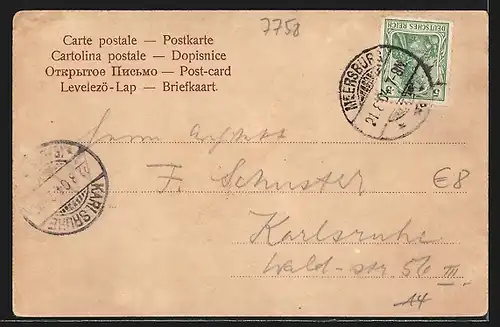 7758
Carte postale — Postkarte
Cartolina postale — Dopisnice
Открытое Письмо — Post-card
Levelező-Lap — Briefkaart.
DEUTSCHES REICH
5
MEERSBURG
21.8.04.
KARLSRUHE
Herrn
F. Schuster
€8
Karlsruhe
Wald-str. 56 III.
A4